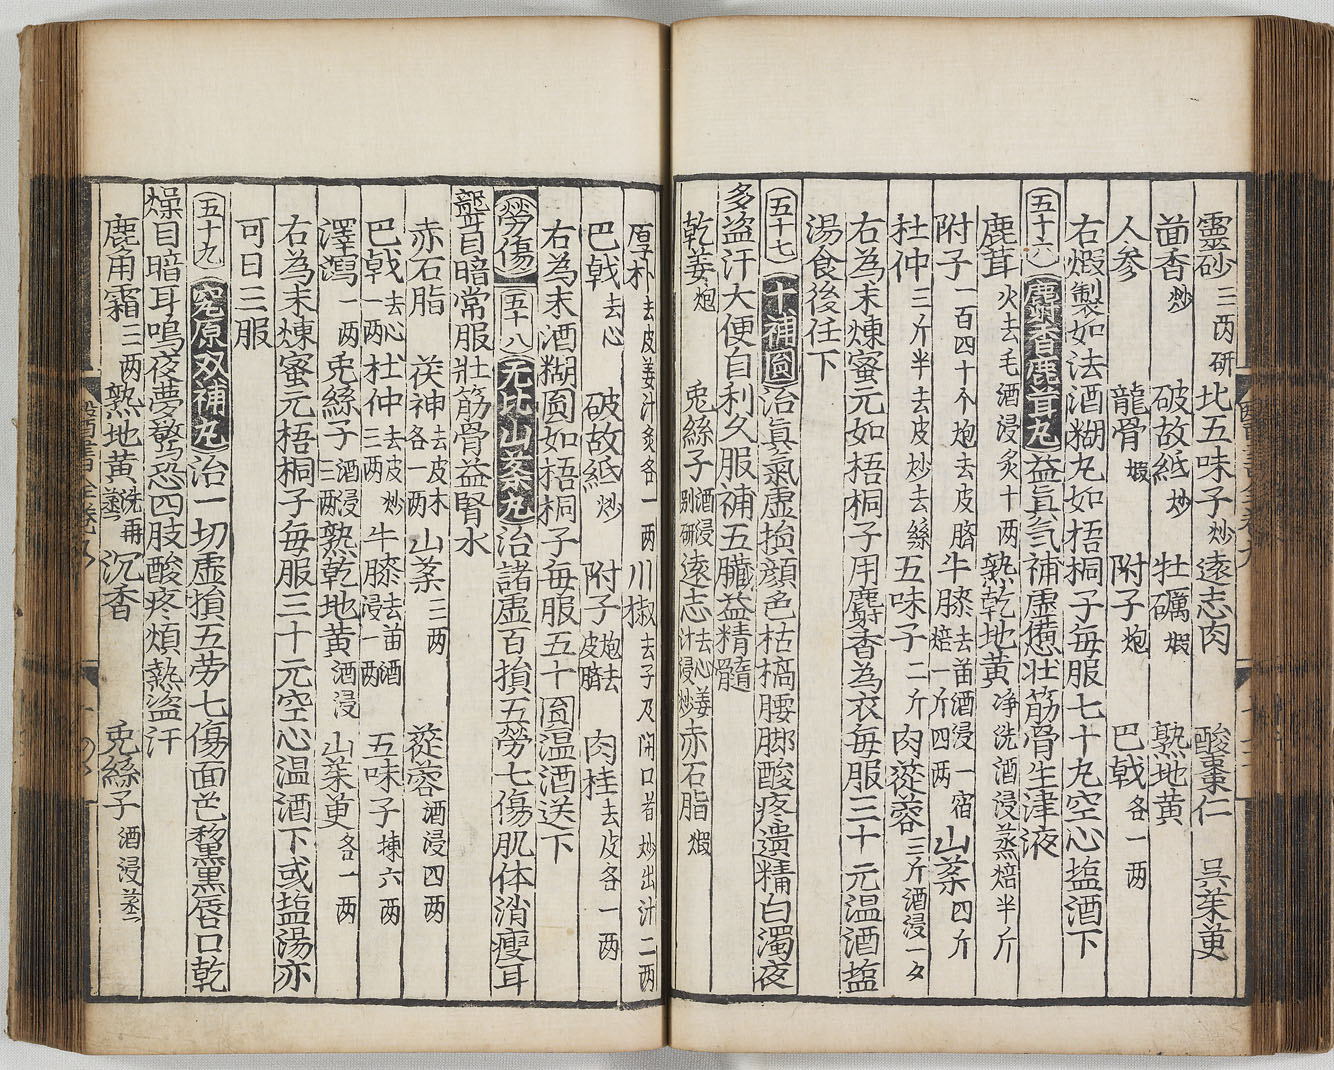 靈砂三两研北五味子炒遠志肉酸棗仁吳茱萸
茴香炒破故紙炒牡礪煆熟地黄
人参龍骨煆附子炮巴戟各一两
右煆製如法酒糊丸如梧桐子每服七十丸空心塩酒下
五十六麝香鹿茸丸益真气補虚憊壮筋骨生津液
鹿茸火去毛酒浸炙十两熟乾地黄净洗酒浸蒸焙半斤
附子一百四十个炮去皮臍牛膝去苗酒浸一宿焙一斤四两山茱四斤
杜仲三斤半去皮炒去絲五味子二斤肉蓯蓉三斤酒浸一夕
右為末煉蜜元如梧桐子用麝香為衣每服三十元温酒塩
湯食後任下
五十七十補圓治真氣虚損顔色枯槁腰脚酸疼遺精白濁夜
多盗汗大便自利久服補五臓益精髓
乾姜炮兎絲子酒浸别研遠志去心姜汁浸炒赤石脂煆
厚朴去皮姜汁炙各一两川椒去子及閉口者炒出汁二两
巴戟去心破故紙炒附子炮去皮臍肉桂去皮各一两
右為末酒糊圓如梧桐子每服五十圓温酒送下
勞傷五十八无比山茱丸治諸虚百損五勞七傷肌体消瘦耳
聾目暗常服壯筋骨益腎水
赤石脂茯神去皮木各一两山茱三两蓯蓉酒浸四两
巴戟去心一两杜仲去皮炒三两牛膝去苗酒浸一两五味子揀六两
澤瀉一两兎絲子酒浸三两熟乾地黄酒浸山茱萸各一两
右為末煉蜜元梧桐子每服三十元空心温酒下或塩湯亦
可日三服
五十九究原双補丸治一切虚損五劳七傷面色黧黒唇口乾
燥目暗耳鳴夜夢驚恐四肢酸疼煩熱盗汗
鹿角霜三两熟地黄洗再蒸沉香兎絲子酒浸蒸